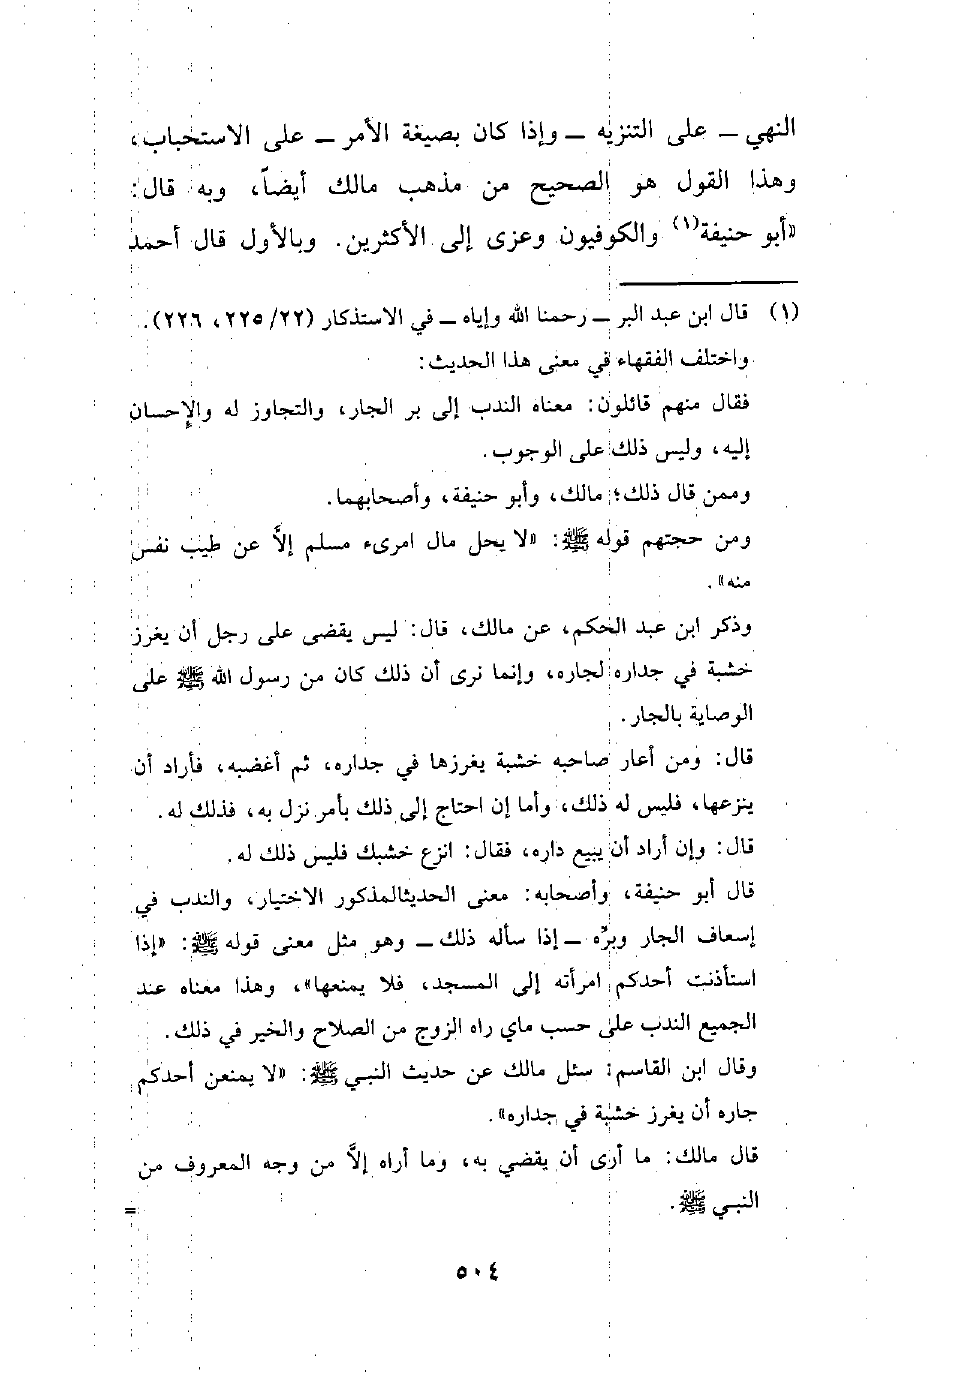 النهي ــ على التنزيه ــ وإذا كان بصيغة الأمر ــ على الاستحباب،
وهذا القول هو الصحيح من مذهب مالك أيضاً، وبه قال:
«أبو حنيفة(١) والكوفيون وعزى إلى الأكثرين. وبالأول قال أحمد
(١) قال ابن عبد البر ــ رحمنا الله وإياه ــ في الاستذكار (٢٢/ ٢٢٥، ٢٢٦).
واختلف الفقهاء في معنى هذا الحديث:
فقال منهم قائلون: معناه الندب إلى بر الجار، والتجاوز له والإحسان
إليه، وليس ذلك على الوجوب.
وممن قال ذلك؛ مالك، وأبو حنيفة، وأصحابهما.
ومن حجتهم قوله ﷺ: «لا يحل مال امرىء مسلم إلاَّ عن طيب نفس
منه».
وذكر ابن عبد الحكم، عن مالك، قال: ليس يقضى على رجل أن يغرز
خشبة في جداره لجاره، وإنما نرى أن ذلك كان من رسول الله ﷺ على
الوصاية بالجار.
قال: ومن أعار صاحبه خشبة يغرزها في جداره، ثم أغضبه، فأراد أن
ينزعها، فليس له ذلك، وأما إن احتاج إلى ذلك بأمر نزل به، فذلك له.
قال: وإن أراد أن يبيع داره، فقال: انزع خشبك فليس ذلك له.
قال أبو حنيفة، وأصحابه: معنى الحديثالمذكور الاختيار، والندب في
إسعاف الجار وبرِّه ــ إذا سأله ذلك ــ وهو مثل معنى قوله ﷺ: «إذا
استأذنت أحدكم امرأته إلى المسجد، فلا يمنعها»، وهذا معناه عند
الجميع الندب على حسب ماي راه الزوج من الصلاح والخير في ذلك.
وقال ابن القاسم: سئل مالك عن حديث النبي ﷺ: «لا يمنعن أحدكم
جاره أن يغرز خشبة في جداره».
قال مالك: ما أرى أن يقضي به، وما أراه إلاَّ من وجه المعروف من
النبي ﷺ.
=
٥٠٤